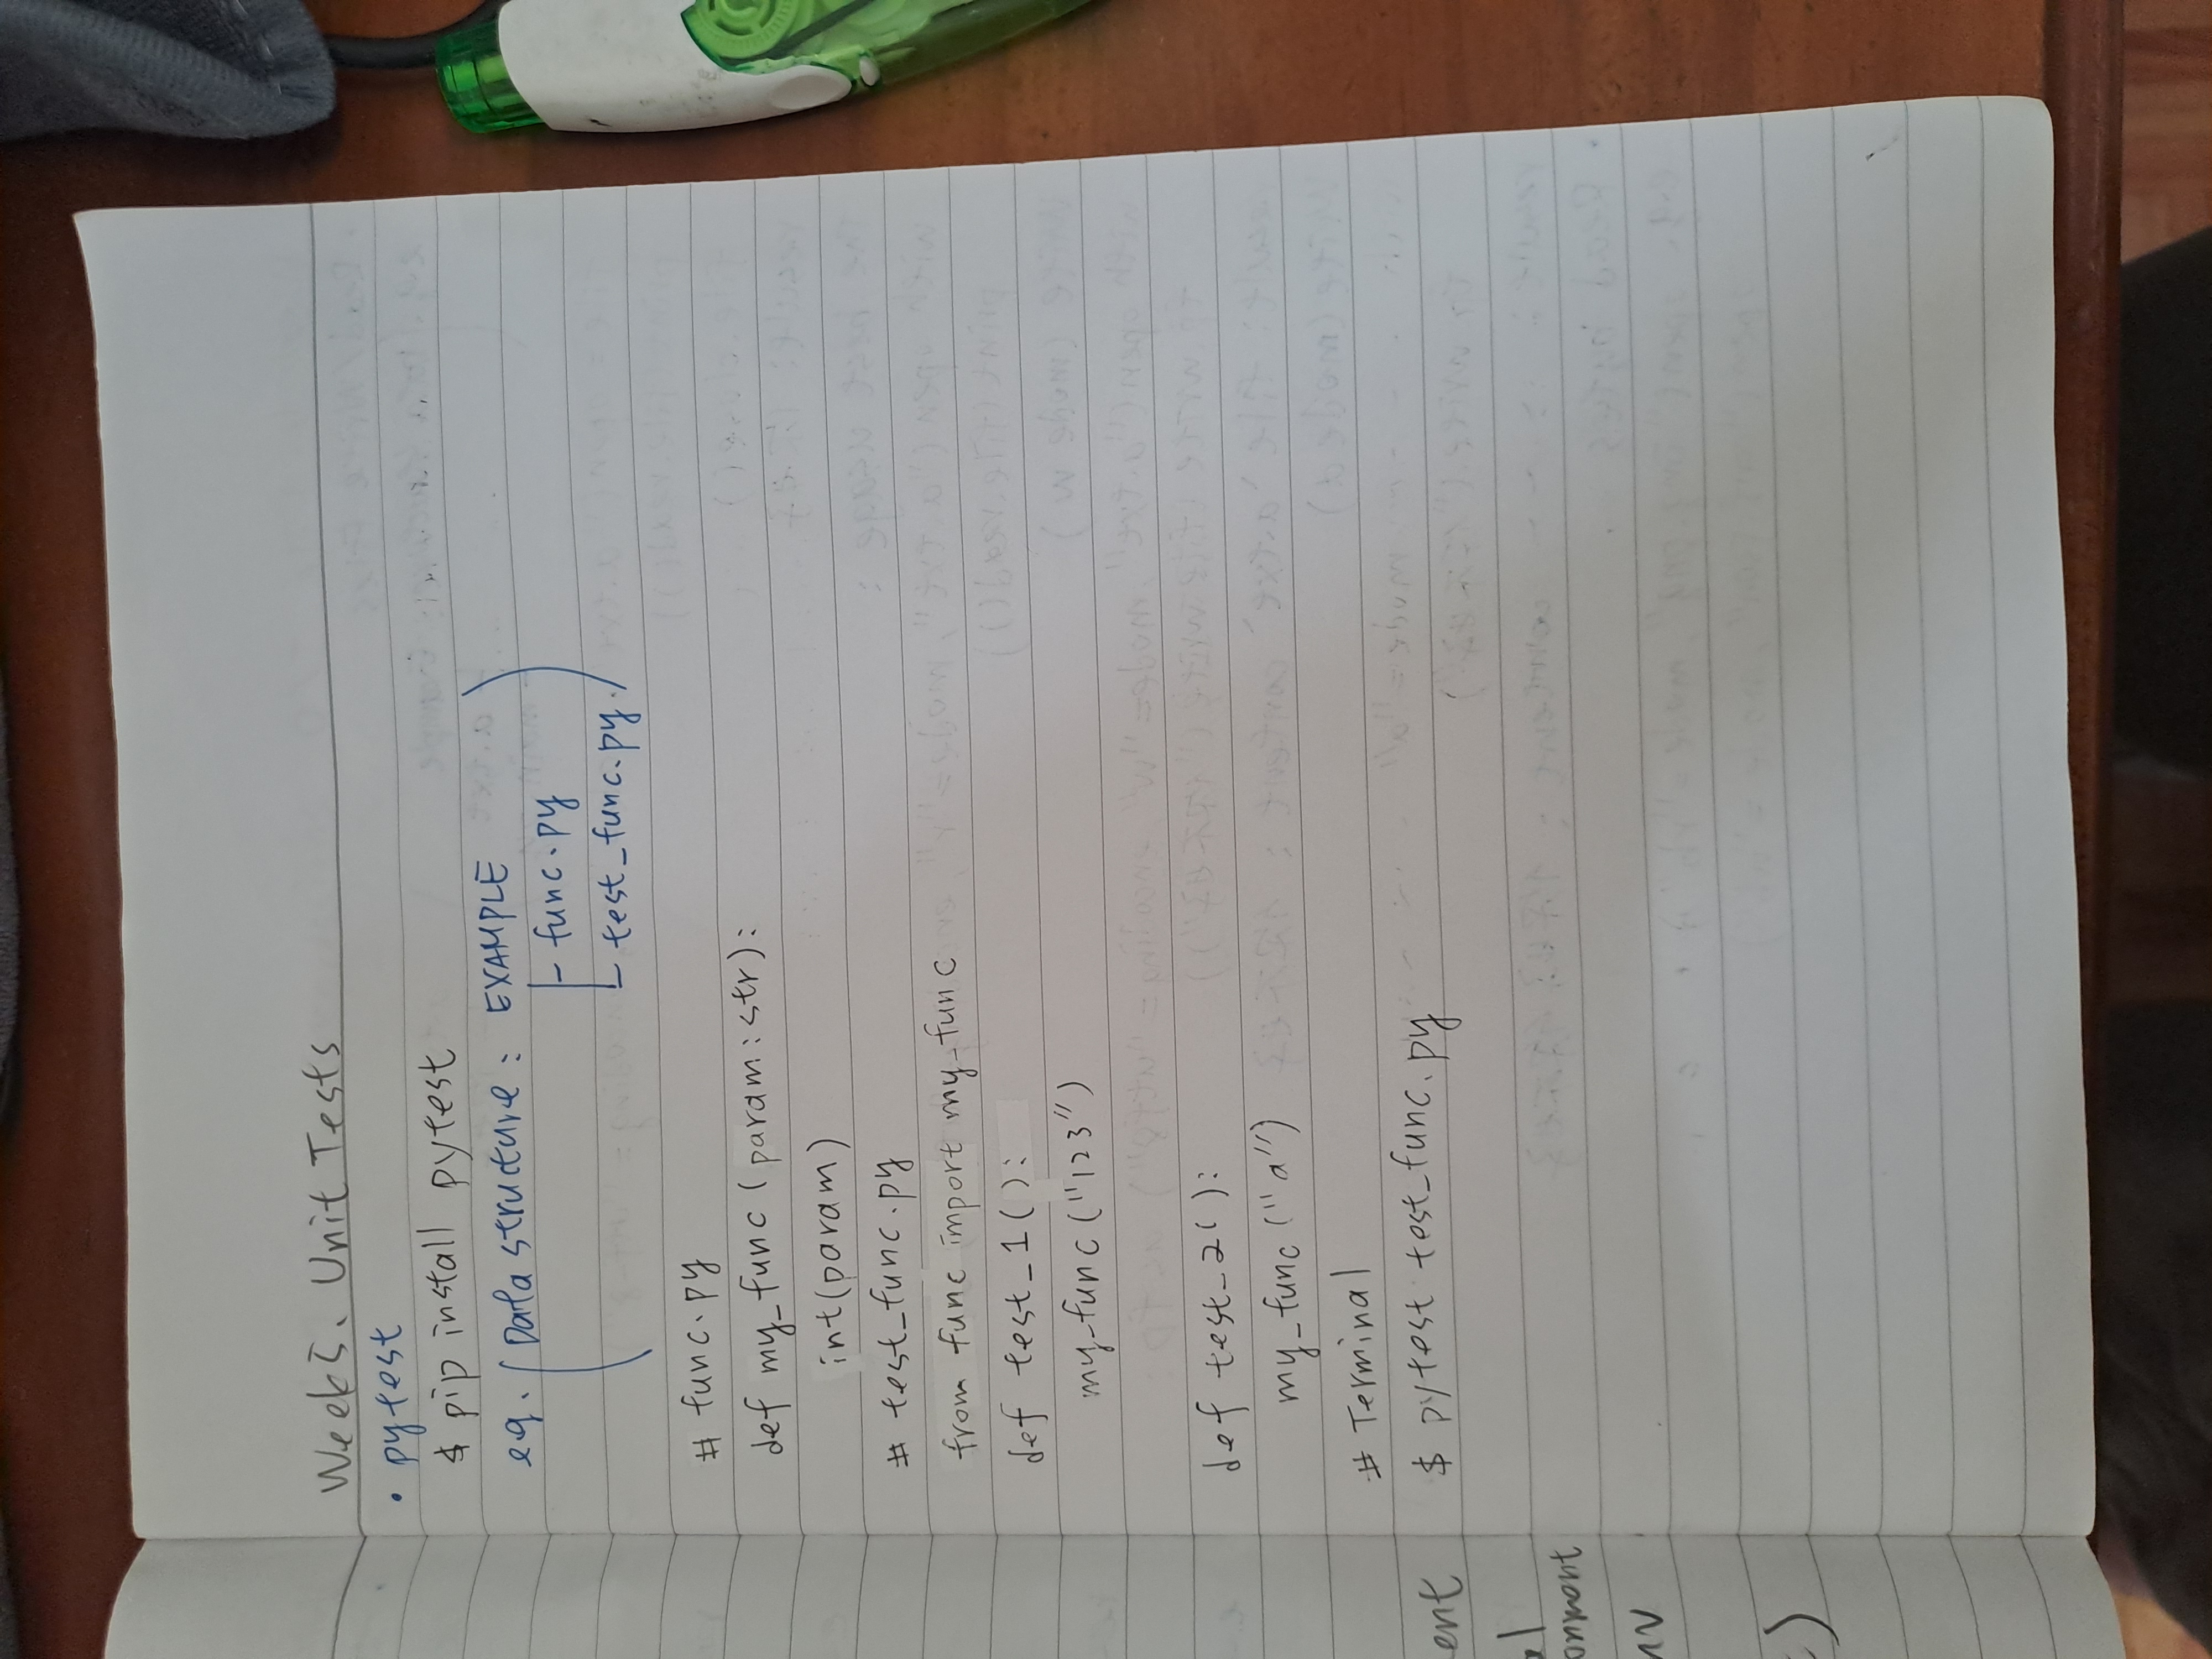 Week5、Unit Tests
• pytest
$ pip install pytest
eg. (Data structure: EXAMPLE
├ func.py
└ test_func.py.)
# func.py
def my_func(param:str):
int(param)
# test_func.py
from func import my_func
def test_1():
my_func("123")
def test_2():
my_func("a")
# Terminal
$ pytest test_func.py
ent
onment
nv